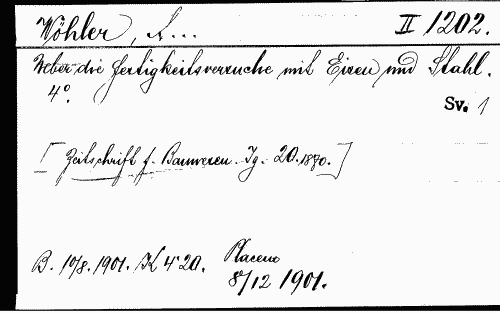 Wöhler, A... II 1202.
Ueber die Festigkeitsversuche mit Eisen und Stahl.
4°.
Sv. 1
[Zeitschrift f. Bauwesen. Jg. 20. 1870.]
B. 10/8. 1901. K 4·20. Placeno
8/12 1901.